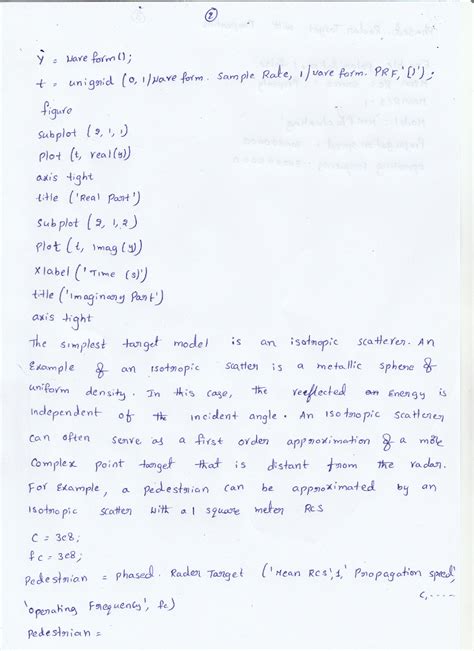 2
Y = Waveform();
t = unigrid (0, 1/Waveform. Sample Rate, 1/Waveform. PRF, '[)');
figure
subplot (2, 1, 1)
plot (t, real(y))
axis tight
title ('Real Part')
subplot (2, 1, 2)
plot (t, Imag (y))
Xlabel ('Time (s)')
title ('Imaginary Part')
axis tight
The simplest target model is an isotropic scatterer. An
Example of an isotropic scatter is a metallic sphere of
uniform density. In this case, the reeflected Energy is
independent of the incident angle. An isotropic scatterer
can often serve as a first order approximation of a more
Complex point target that is distant from the radar.
For Example, a pedestrian can be approximated by an
Isotropic scatter with a 1 square meter RCS
C = 3e8;
fc = 3e8;
Pedestrian = phased. Rader Target ('Mean RCS', 1, 'Propagation speed',
c, ....
'operating Frequency', fc)
Pedestrian =